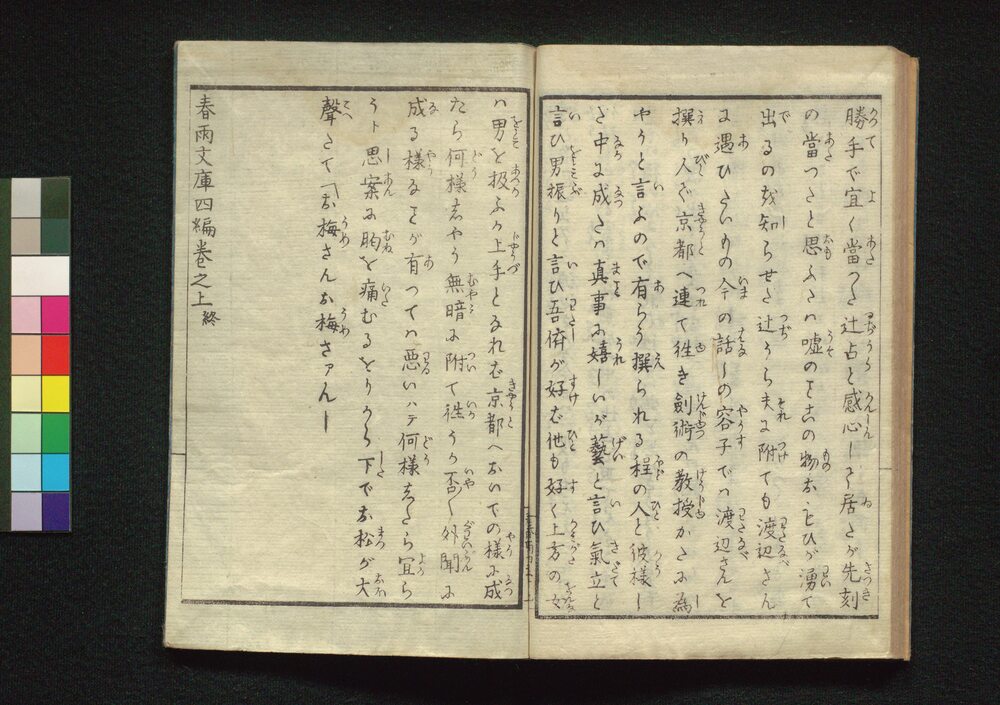 勝手で宜く當つた辻占と感心して居たが先刻
の當つたと思ふたハ嘘の物おもひが湧て
出るのを知らせた辻うら夫に附ても渡辺さん
に遇ひたいもの今の話しの容子でハ渡辺さんを
撰り人で京都へ連て徃き劍術の教授かたに為
やうと言ふので有らう撰られる程の人と彼様し
た中に成たハ真事に嬉しいが藝と言ひ氣立と
言ひ男振りと言ひ吾儕が好ば他も好く上方の女
ハ男を扱ふが上手となれば京都へおいでの様に成
たら何様しやう無暗に附て徃うか否々外聞に
成る様なことが有つてハ悪いハテ何様したら宜ら
うト思案に胸を痛むるをりから下でお松が大
聲たて「お梅さんお梅さァんー
春雨文庫四編巻之上終